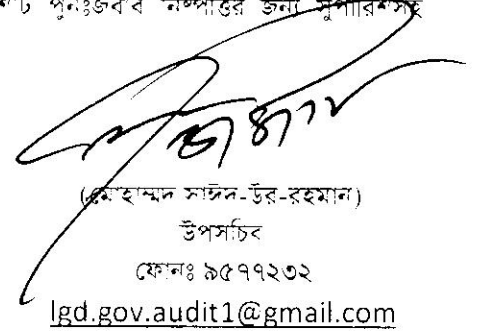 পুনঃজবাব নিষ্পত্তির জন্য সুপারিশসহ
(মোহাম্মদ সাঈদ-উর-রহমান)
উপসচিব
ফোনঃ ৯৫৭৭২৩২
lgd.gov.audit1@gmail.com